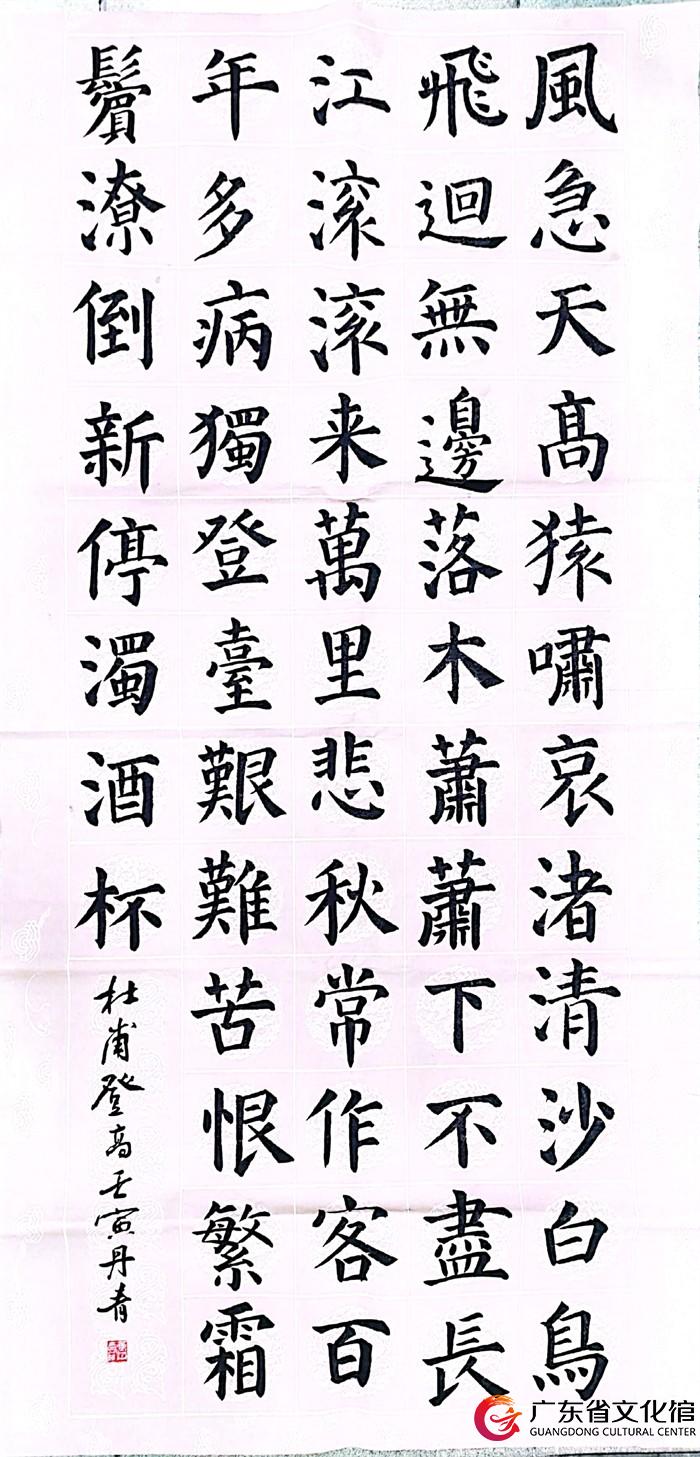 風急天髙猿嘯哀渚清沙白鳥
飛迴無邊落木蕭蕭下不盡長
江滚滚来萬里悲秋常作客百
年多病獨登臺艱難苦恨繁霜
鬢潦倒新停濁酒杯
杜甫登高壬寅丹青
广东省文化馆
GUANGDONG CULTURAL CENTER